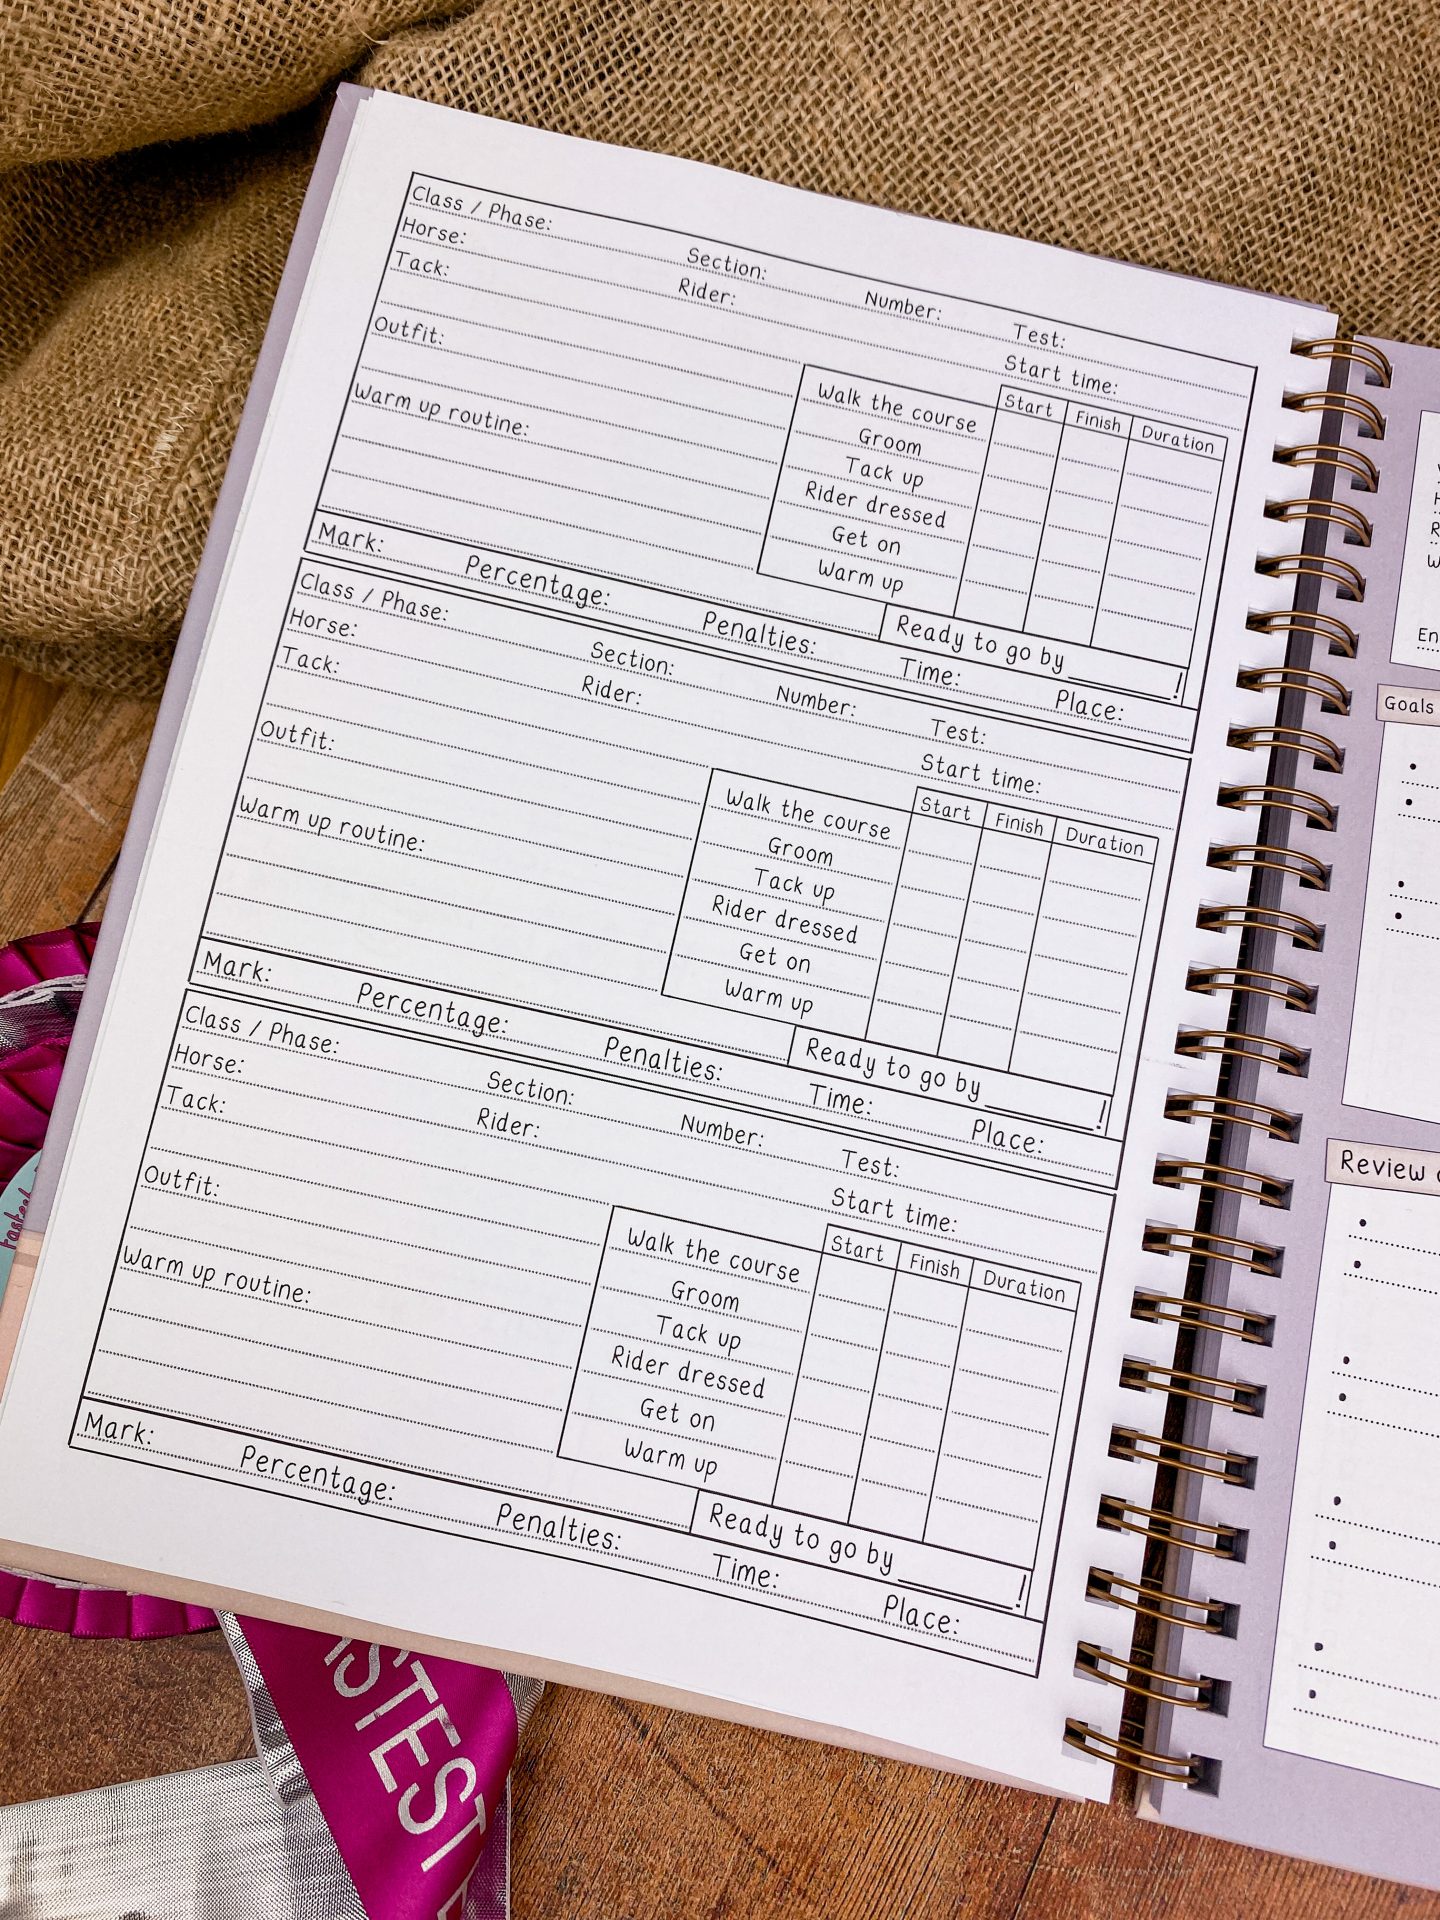 Class / Phase: Section: Number: Test:
Horse: Rider: Start time:
Tack:
Outfit:
Warm up routine:
Start Finish Duration
Walk the course
Groom
Tack up
Rider dressed
Get on
Warm up
Ready to go by ________!
Mark: Percentage: Penalties: Time: Place:
Class / Phase: Section: Number: Test:
Horse: Rider: Start time:
Tack:
Outfit:
Warm up routine:
Start Finish Duration
Walk the course
Groom
Tack up
Rider dressed
Get on
Warm up
Ready to go by ________!
Mark: Percentage: Penalties: Time: Place:
Class / Phase: Section: Number: Test:
Horse: Rider: Start time:
Tack:
Outfit:
Warm up routine:
Start Finish Duration
Walk the course
Groom
Tack up
Rider dressed
Get on
Warm up
Ready to go by ________!
Mark: Percentage: Penalties: Time: Place:
Goals
Review